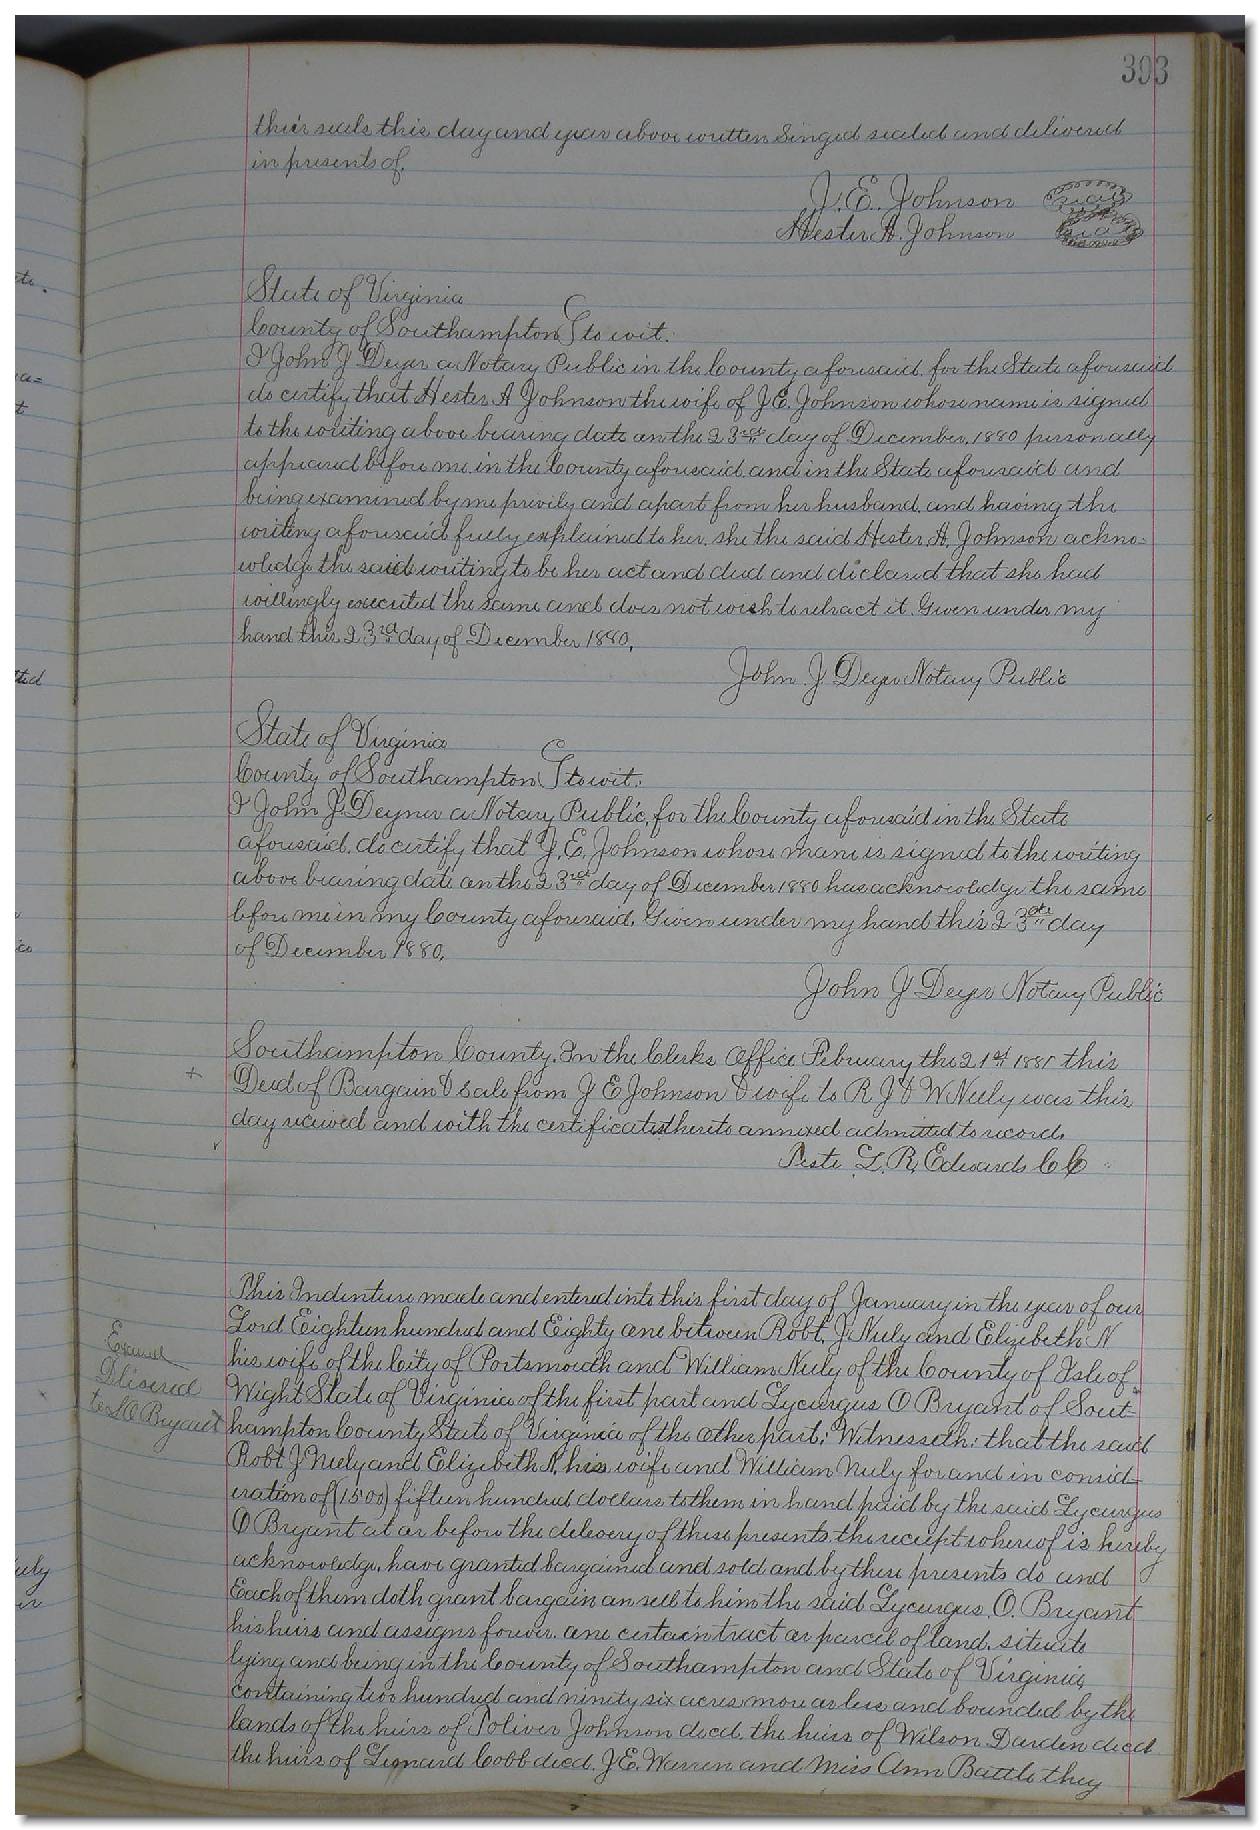 393
their seals this day and year above written Singed sealed and delivered
in presents of.
J. E. Johnson Seal
Hester A. Johnson Seal
State of Virginia
County of Southampton To wit.
I John J Deyer a Notary Public in the County aforesaid for the State aforesaid
do certify that Hester A Johnson the wife of J. E. Johnson whose name is signed
to the writing above bearing date on the 23rd day of December, 1880 personally
appeared before me in the County aforesaid and in the State aforesaid and
being examined by me privily and apart from her husband, and having the
writing aforesaid fully explained to her, she the said Hester A. Johnson ackno-
wledge the said writing to be her act and deed and declared that she had
willingly executed the same and does not wish to retract it. Given under my
hand this 23rd day of December 1880,
John J Deyer Notary Public
State of Virginia
County of Southampton To wit:
I John J. Deyner a Notary Public, for the County aforesaid in the State
aforesaid, do certify that J. E. Johnson whose name is signed to the writing
above bearing date on the 23rd day of December 1880 has acknowledge the same
before me in my County aforesaid, Given under my hand this 23rd day
of December 1880,
John J Deyer Notary Public
Southampton County, In the Clerks Office February the 21st 1881 this
Deed of Bargain & sale from J E Johnson & wife to R J & W Neely was this
day received and with the certificates thereto annexed admitted to records
Teste L. R. Edwards CC
This Indenture made and entered into this first day of January in the year of our
Lord Eighteen hundred and Eighty one between Robt. J. Neely and Elizebeth N
his wife of the City of Portsmouth and William Neely of the County of Isle of
Wight State of Virginia of the first part and Lycurgus O Bryant of Sout-
hampton County State of Virginia of the other part; Witnesseth: that the said
Robt J Neely and Elizebeth N, his wife and William Neely for and in consid-
eration of (1500) fifteen hundred dollars to them in hand paid by the said Lycurgus
O Bryant at or before the delevery of these presents, the receipt whereof is hereby
acknowledge, have granted bargained and sold and by these presents do and
Each of them doth grant bargain an sell to him the said Lycurgus, O. Bryant
his heirs and assigns forever, one certain tract or parcel of land, situate
lying and being in the County of Southampton and State of Virginia,
containing two hundred and ninity six acres more or less and bounded by the
lands of the heirs of Toliver Johnson decd, the heirs of Wilson Darden decd
the heirs of Leonard Cobb decd. J. E. Warren and Miss Ann Battle they
Examd
Dlivered
to L O Bryant